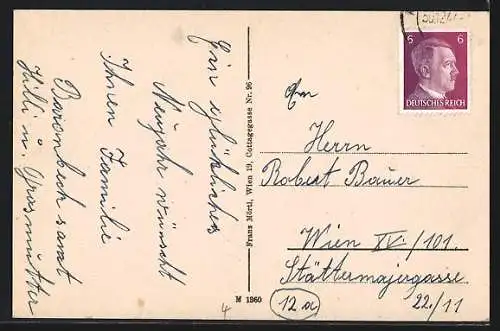 Ein glückliches
Neujahr wünscht
Ihnen Familie
Baronbeck samt
Hilli u. Grosmutter
Franz Mörtl, Wien 19, Cottagegasse Nr. 26
M 1360
4
6 6
DEUTSCHES REICH
An
Herrn
Robert Bauer
Wien XV./101.
Stättermajergasse
22./11
12a